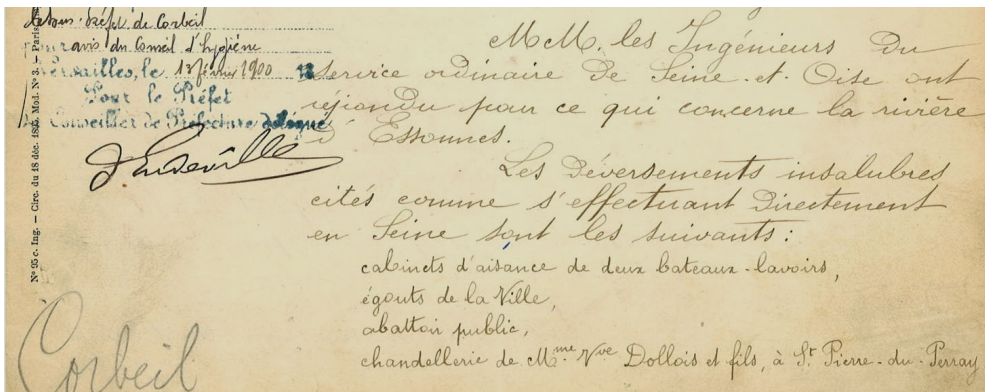 Sous-Préfet de Corbeil
pour avis du Conseil d'hygiène
Versailles, le 13 février 1900
Pour le Préfet
Conseiller de Préfecture délégué
N° 95 c. Ing. — Circ. du 18 déc. Mod. N° 3. — Paris
MM. les Ingénieurs du
service ordinaire de Seine-et-Oise ont
répondu pour ce qui concerne la rivière
d'Essonnes.
Les déversements insalubres
cités comme s'effectuant directement
en Seine sont les suivants :
cabinets d'aisance de deux bateaux-lavoirs,
égouts de la Ville,
abattoir public,
chandellerie de Mme Vve Dollois et fils, à St Pierre-du-Perray
Corbeil